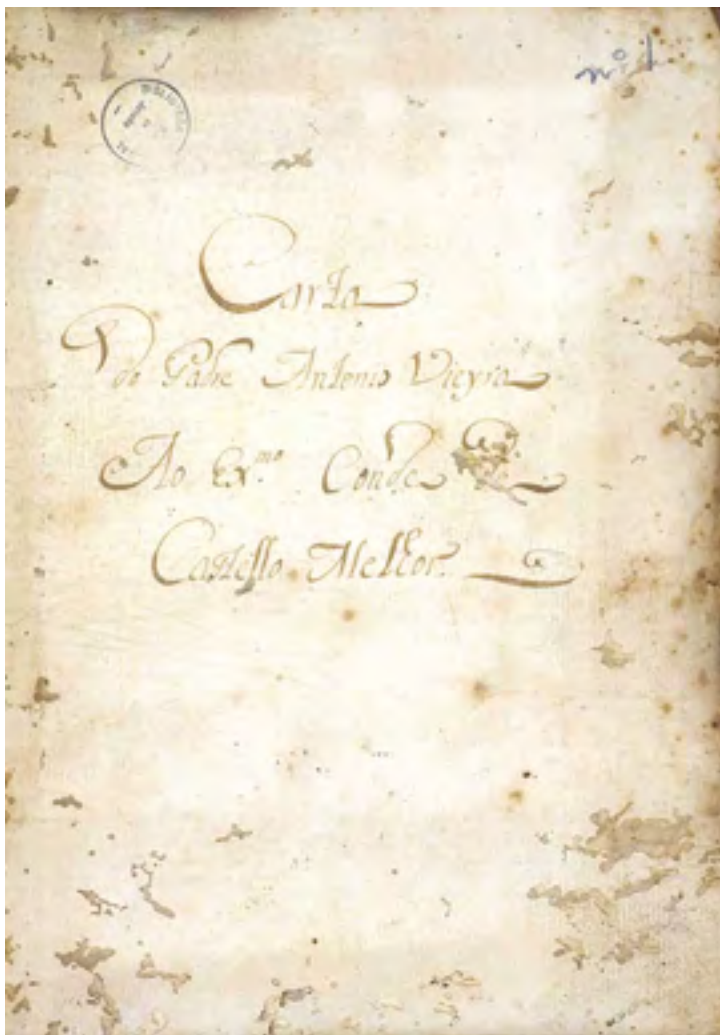 nº 1
BIBLIOTECA
Carta
do Padre Antonio Vieyra
Ao Ex.mo Conde de
Castello Melhor.